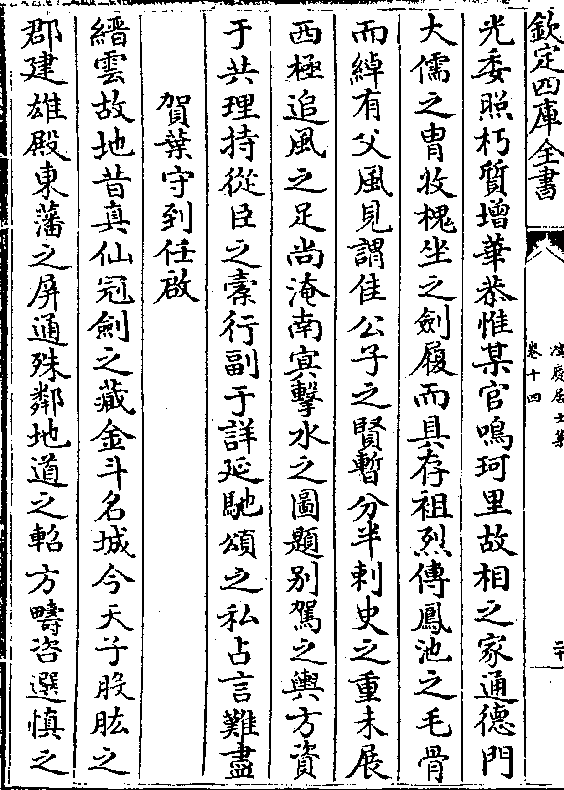 欽定四庫全書
卷十四
光委照朽質增華恭惟某官鳴珂里故相之家通德門
大儒之胄收槐坐之劍履而具存祖烈傳鳳池之毛骨
而綽有父風見謂佳公子之賢暫分半刺史之重未展
西極追風之足尚淹南寅擊水之圖題别駕之輿方資
于共理持從臣之橐行副于詳延馳頌之私占言難盡
賀葉守到任啟
縉雲故地昔真仙冠劍之藏金斗名城今天子股肱之
郡建雄殿東藩之屏通殊鄰地道之軺方疇咨選慎之